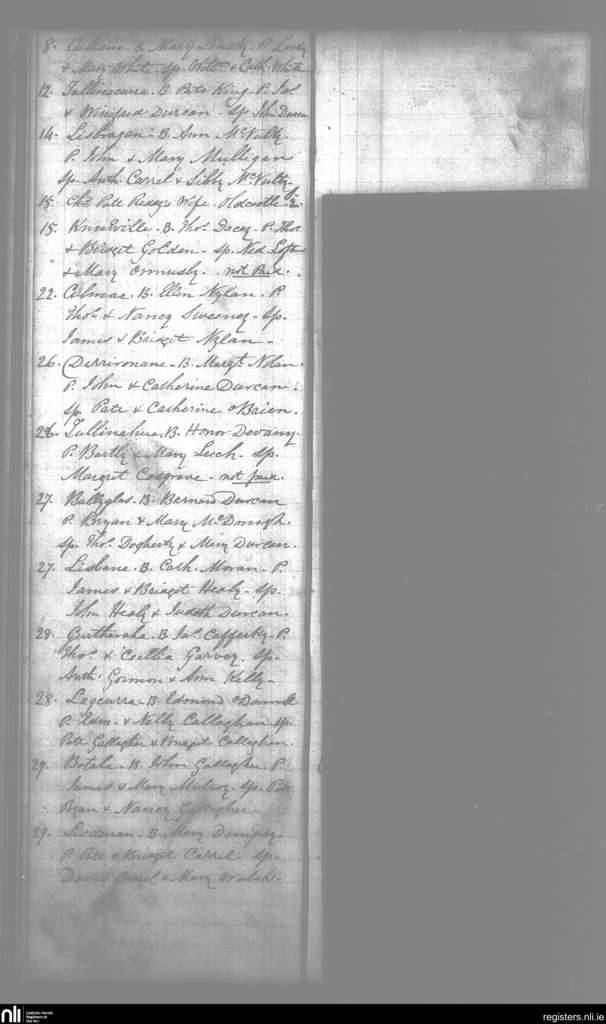 8. Cullana B. Mary P.
& Mary White Sp. Willm & Cath. White
12. Tullinacurra. B. Patt King. P. Jas
& Winifred Durcan. Sp. John Durcan
14. Lisbrogan. B. Ann McNulty
P. John & Mary Mulligan
Sp. Anth. Carrel & Sibby McNulty
15. Chd Patt Wife Oldcastle
15. Knoxville. B. Thos Dacey. P. Thos
& Bridget Golden. Sp. Ned
& Mary Ormusly. not Paid.
22. Cilmac. B. Ellen Nylan. P.
Thos & Nancy Sweeney. Sp.
James & Bridget Nylan.
26. Derrivonane. B. Margt Nolan.
P. John & Catherine Durcan.
Sp. Patt & Catherine OBrien.
26. Tullinahue. B. Honor Devany.
P. Bartly & Mary Leech. Sp.
Margret Cosgrave. not paid.
27. Ballyglas. B. Bernard Durcan
P. Bryan & Mary McDonogh.
Sp. Thos Dogherty & Mary Durcan.
27. Lisbane. B. Cath. Moran. P.
James & Bridget Healy. Sp.
John Healy & Judith Durcan.
28. B. Jas Cafferky. P.
Thos & Garvey. Sp.
Anth. Gormon & Ann Kelly.
28. Lagcurra. B. Edmond ODonnell
P. Edm. & Nelly Callaghan Sp.
Patt Gallagher & Bridget Callaghan.
29. Botale. B. John Gallagher P.
James & Mary Mulroy. Sp. Patt
Ryan & Nancy Gallagher
29. Lisduvan. B. Mary Dempsey.
P. Patt & Bridget Carrel. Sp.
Denis Carrel & Mary Walsh.
nli Catholic Parish Registers at the NLI
registers.nli.ie